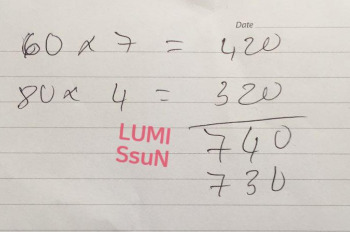 Date
60 x 7 = 420
80 x 4 = 320
740
730
LUMI
SsuN